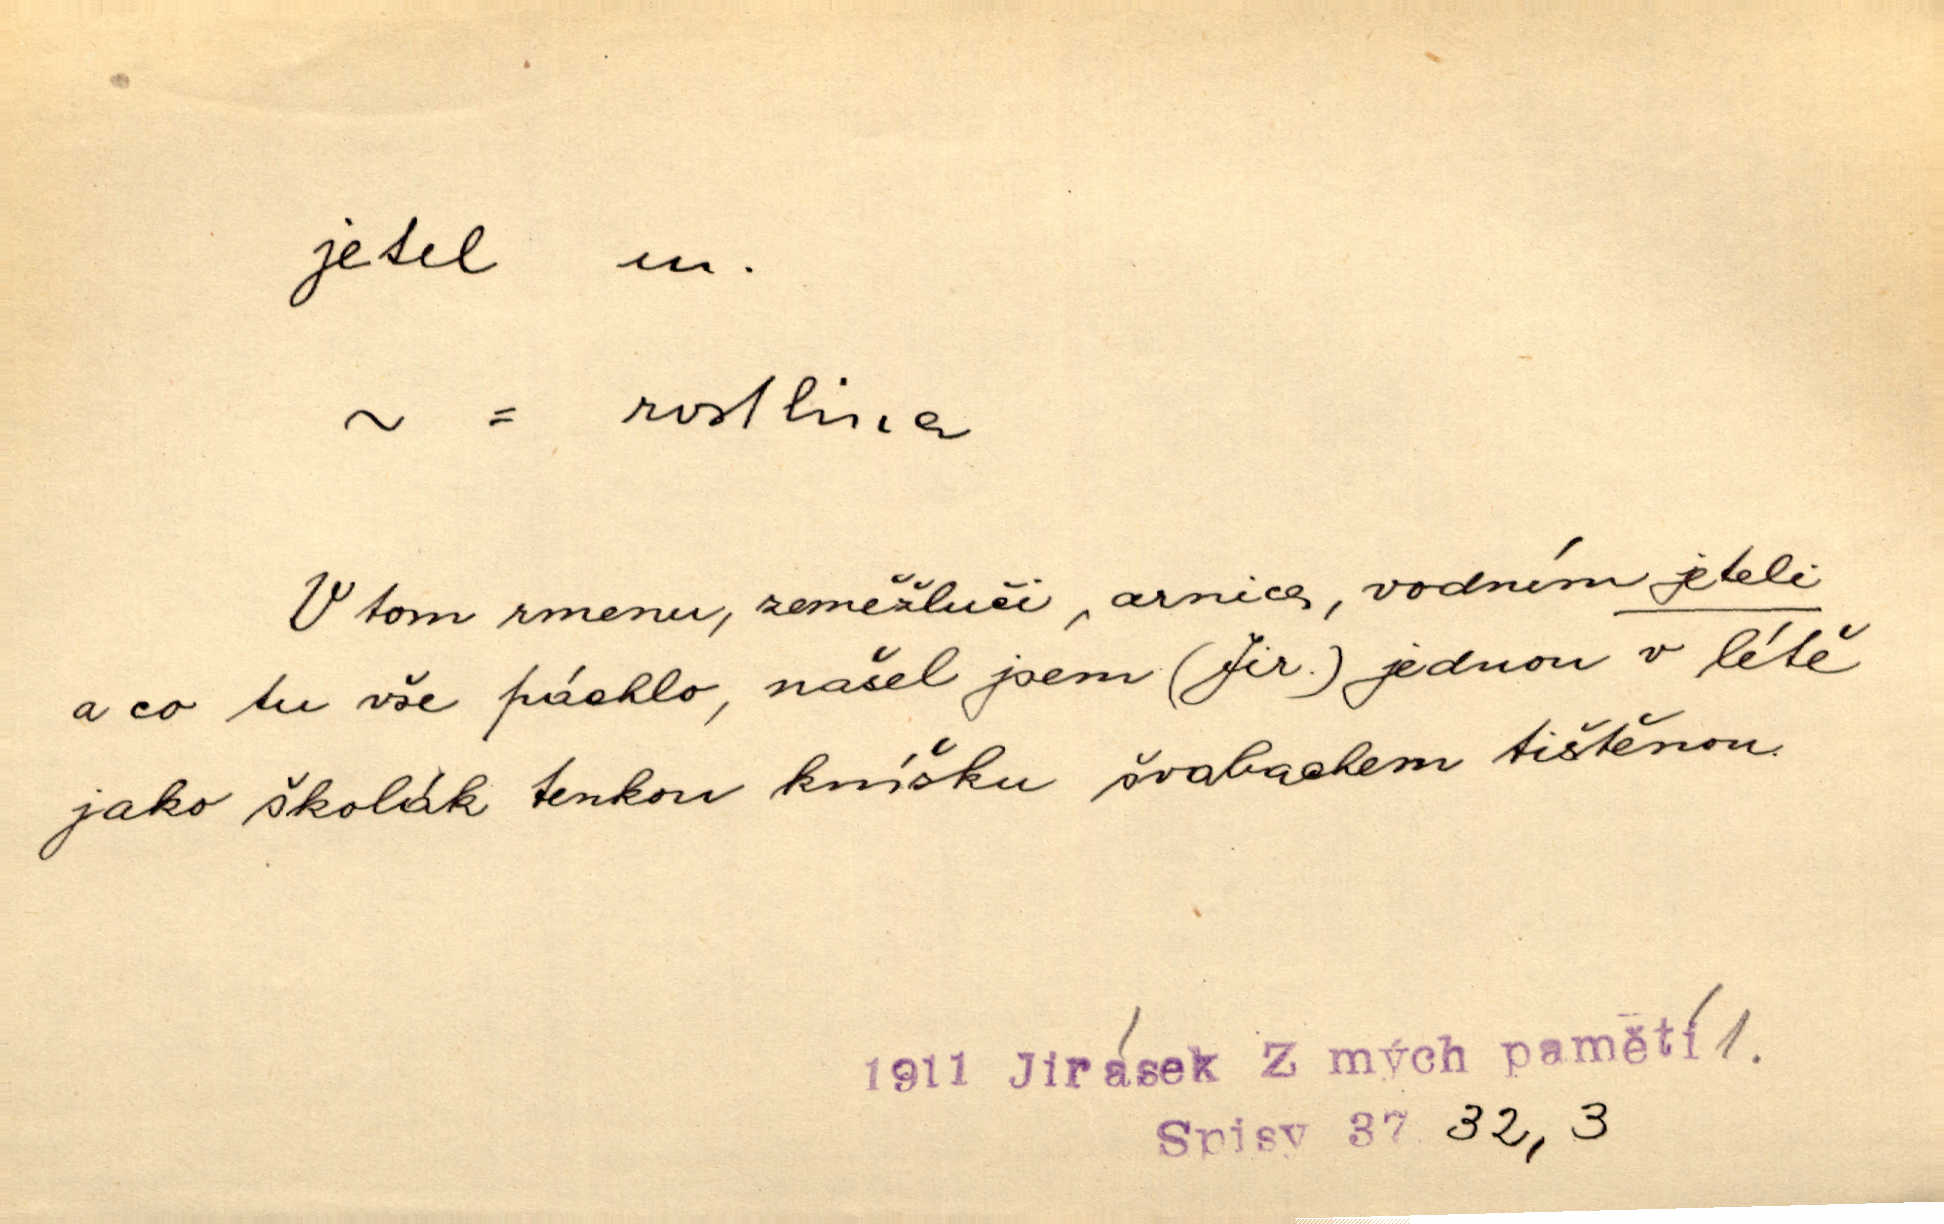 jetel m.
~ = rostlina
V tom rmenu, zeměžluči, arnice, vodním jeteli
a co tu vše páchlo, našel jsem (Jir.) jednou v létě
jako školák tenkou knížku švabachem tištěnou.
1911 Jirásek Z mých pamětí 1.
Spisy 37 32, 3